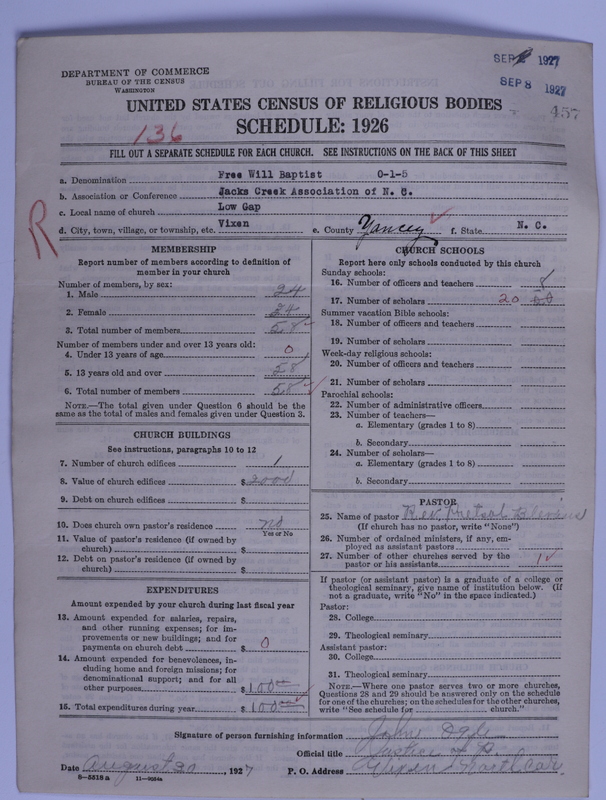 SEP 1927
SEP 8 1927
DEPARTMENT OF COMMERCE
BUREAU OF THE CENSUS
WASHINGTON
UNITED STATES CENSUS OF RELIGIOUS BODIES
457
SCHEDULE: 1926
136
FILL OUT A SEPARATE SCHEDULE FOR EACH CHURCH. SEE INSTRUCTIONS ON THE BACK OF THIS SHEET
a. Denomination Free Will Baptist 0-1-5
b. Association or Conference Jacks Creek Association of N. C.
c. Local name of church Low Gap
d. City, town, village, or township, etc. Vixen e. County Yancey f. State N. C.
R
MEMBERSHIP
Report number of members according to definition of
member in your church
Number of members, by sex:
1. Male 24
2. Female
3. Total number of members 58
Number of members under and over 13 years old:
4. Under 13 years of age 0
5. 13 years old and over 58
6. Total number of members 58
NOTE.—The total given under Question 6 should be the
same as the total of males and females given under Question 3.
CHURCH BUILDINGS
See instructions, paragraphs 10 to 12
7. Number of church edifices 1
8. Value of church edifices $ 2000
9. Debt on church edifices $
10. Does church own pastor's residence no
Yes or No
11. Value of pastor's residence (if owned by
church) $
12. Debt on pastor's residence (if owned by
church) $
EXPENDITURES
Amount expended by your church during last fiscal year
13. Amount expended for salaries, repairs,
and other running expenses; for im-
provements or new buildings; and for
payments on church debt $ 0
14. Amount expended for benevolences, in-
cluding home and foreign missions; for
denominational support; and for all
other purposes $ 100.00
15. Total expenditures during year $ 100.00
CHURCH SCHOOLS
Report here only schools conducted by this church
Sunday schools:
16. Number of officers and teachers 8
17. Number of scholars 20
Summer vacation Bible schools:
18. Number of officers and teachers
19. Number of scholars
Week-day religious schools:
20. Number of officers and teachers
21. Number of scholars
Parochial schools:
22. Number of administrative officers
23. Number of teachers—
a. Elementary (grades 1 to 8)
b. Secondary
24. Number of scholars—
a. Elementary (grades 1 to 8)
b. Secondary
PASTOR
25. Name of pastor Rev.
(If church has no pastor, write "None")
26. Number of ordained ministers, if any, em-
ployed as assistant pastors
27. Number of other churches served by the
pastor or his assistants 1
If pastor (or assistant pastor) is a graduate of a college or
theological seminary, give name of institution below. (If
not a graduate, write "No" in the space indicated.)
Pastor:
28. College
29. Theological seminary
Assistant pastor:
30. College
31. Theological seminary
NOTE.—Where one pastor serves two or more churches,
Questions 28 and 29 should be answered only on the schedule
for one of the churches; on the schedules for the other churches,
write "See schedule for church."
Signature of person furnishing information John
Official title Justice of P.
Date August 30, 1927 P. O. Address Vixen North Car
8—5518 a 11—9264a